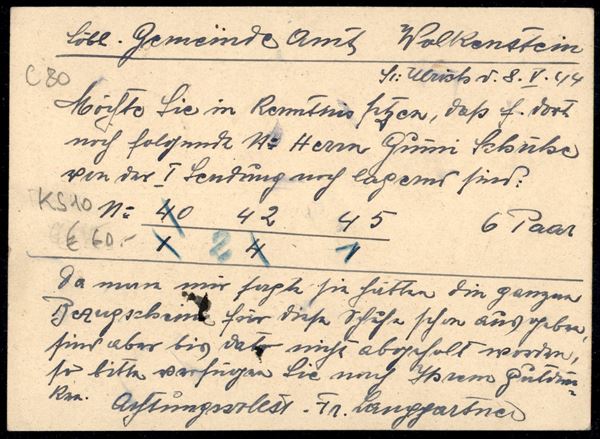 Löbl. Gemeinde Amt Wolkenstein
St. Ulrich d. 8. V. 44
C 80
Möchte Sie in Kenntnis setzen, daß f. dort
noch folgende No Herrn Gumi Schuhe
von der I Sendung noch lagernd sind:
KS10
No 40 42 45 6 Paar
€ 60.-
1 2 4 1
Da man mir sagte sie hätten die ganzen
Bezugscheine für diese Schuhe schon ausgeben,
sind aber bis dato nicht abgeholt worden,
so bitte verfügen Sie nach Ihrem Gutdün-
ken. Achtungsvollst. Fr. Langgartner